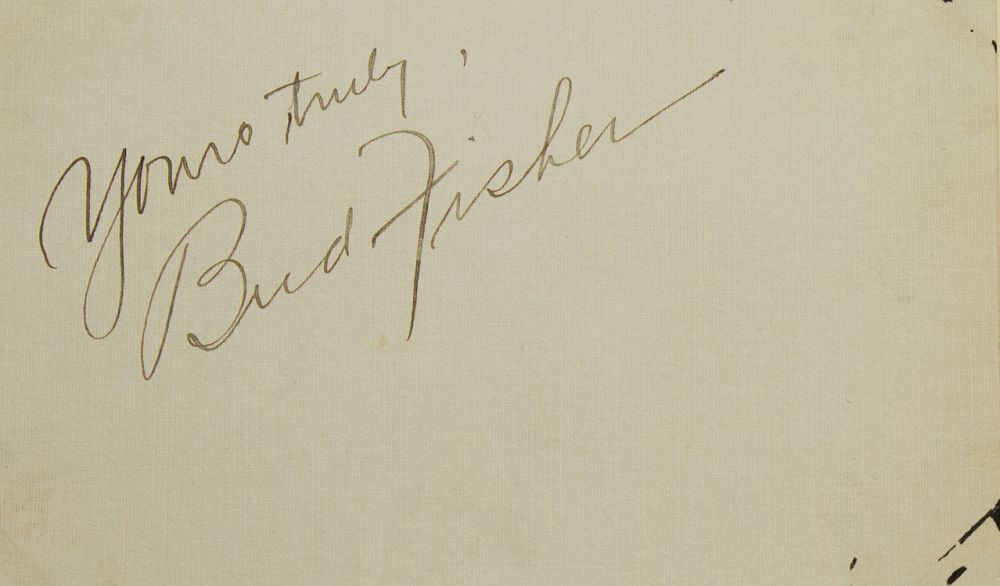 Yours truly,
Bud Fisher